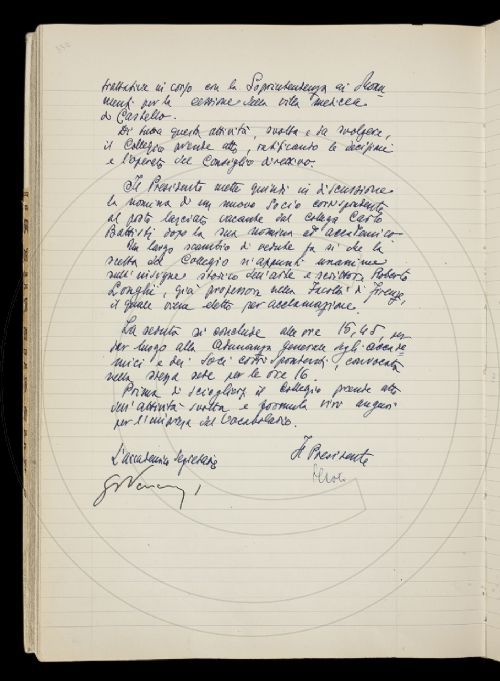 trattative in corso con la Soprintendenza ai Monu
menti per la cessione della villa medicea
di Castello.
Di tutta questa attività, svolta e da svolgere,
il Collegio prende atto, ratificando le decisioni
e l'operato del Consiglio direttivo.
Il Presidente mette quindi in discussione
la nomina di un nuovo Socio corrispondente
al posto lasciato vacante dal collega Carlo
Battisti dopo la sua nomina ad accademico.
Un largo scambio di vedute fa sì che la
scelta del Collegio si appunti unanime
sull'insigne storico dell'arte e scrittore Roberto
Longhi, già professore nella Facoltà di Firenze,
il quale viene eletto per acclamazione.
La seduta si conclude alle ore 15,45, per
dar luogo alla Adunanza generale degli Accade
mici e dei Soci corrispondenti, convocata
nella stessa sede per le ore 16.
Prima di sciogliersi il Collegio prende atto
dell'attività svolta e formula vivi auguri
per l'impresa del Vocabolario.
L'accademico Segretario
Il Presidente